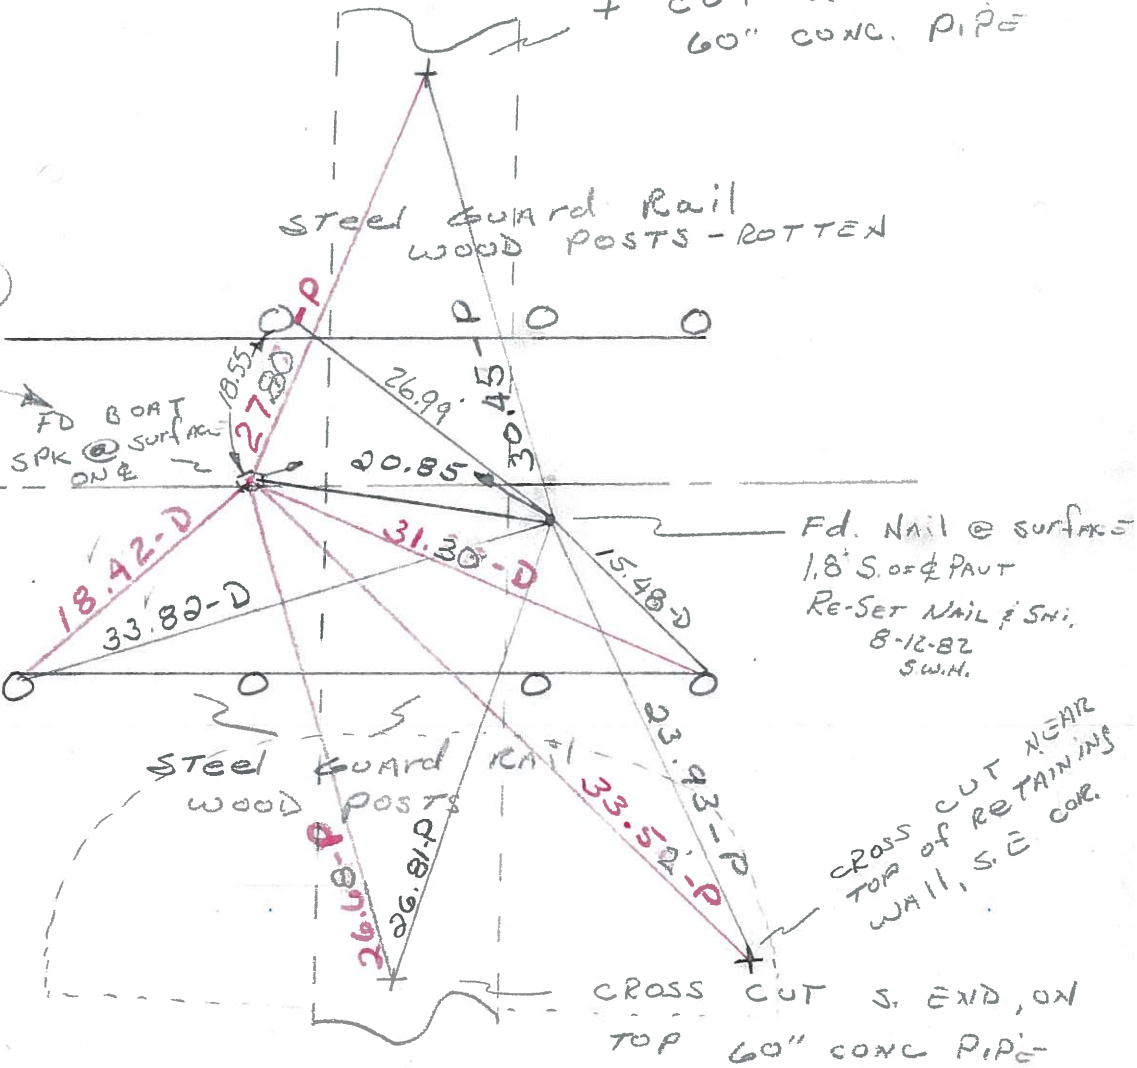 + CUT
60" CONC. PIPE
STeel GUARd Rail
WOOD POSTS - ROTTEN
-P
18.55
27.80
26.99'
30.45-P
FD BOAT
SPK @ SURFACE
ON ℄
20.85
18.42-D
33.82-D
31.30-D
15.48-D
Fd. NAil @ SURFACE
1.8' S. OF ℄ PAVT
RE-SET NAIL & SHI.
8-12-82
S.W.H.
STeel GUARd RAil
WOOD POSTS
26.68-P
26.81-P
33.52'-P
23.93-P
CROSS CUT NEAR
TOP of RETAINING
WAll, S.E COR.
CROSS CUT S. END, ON
TOP 60" CONC PIPE